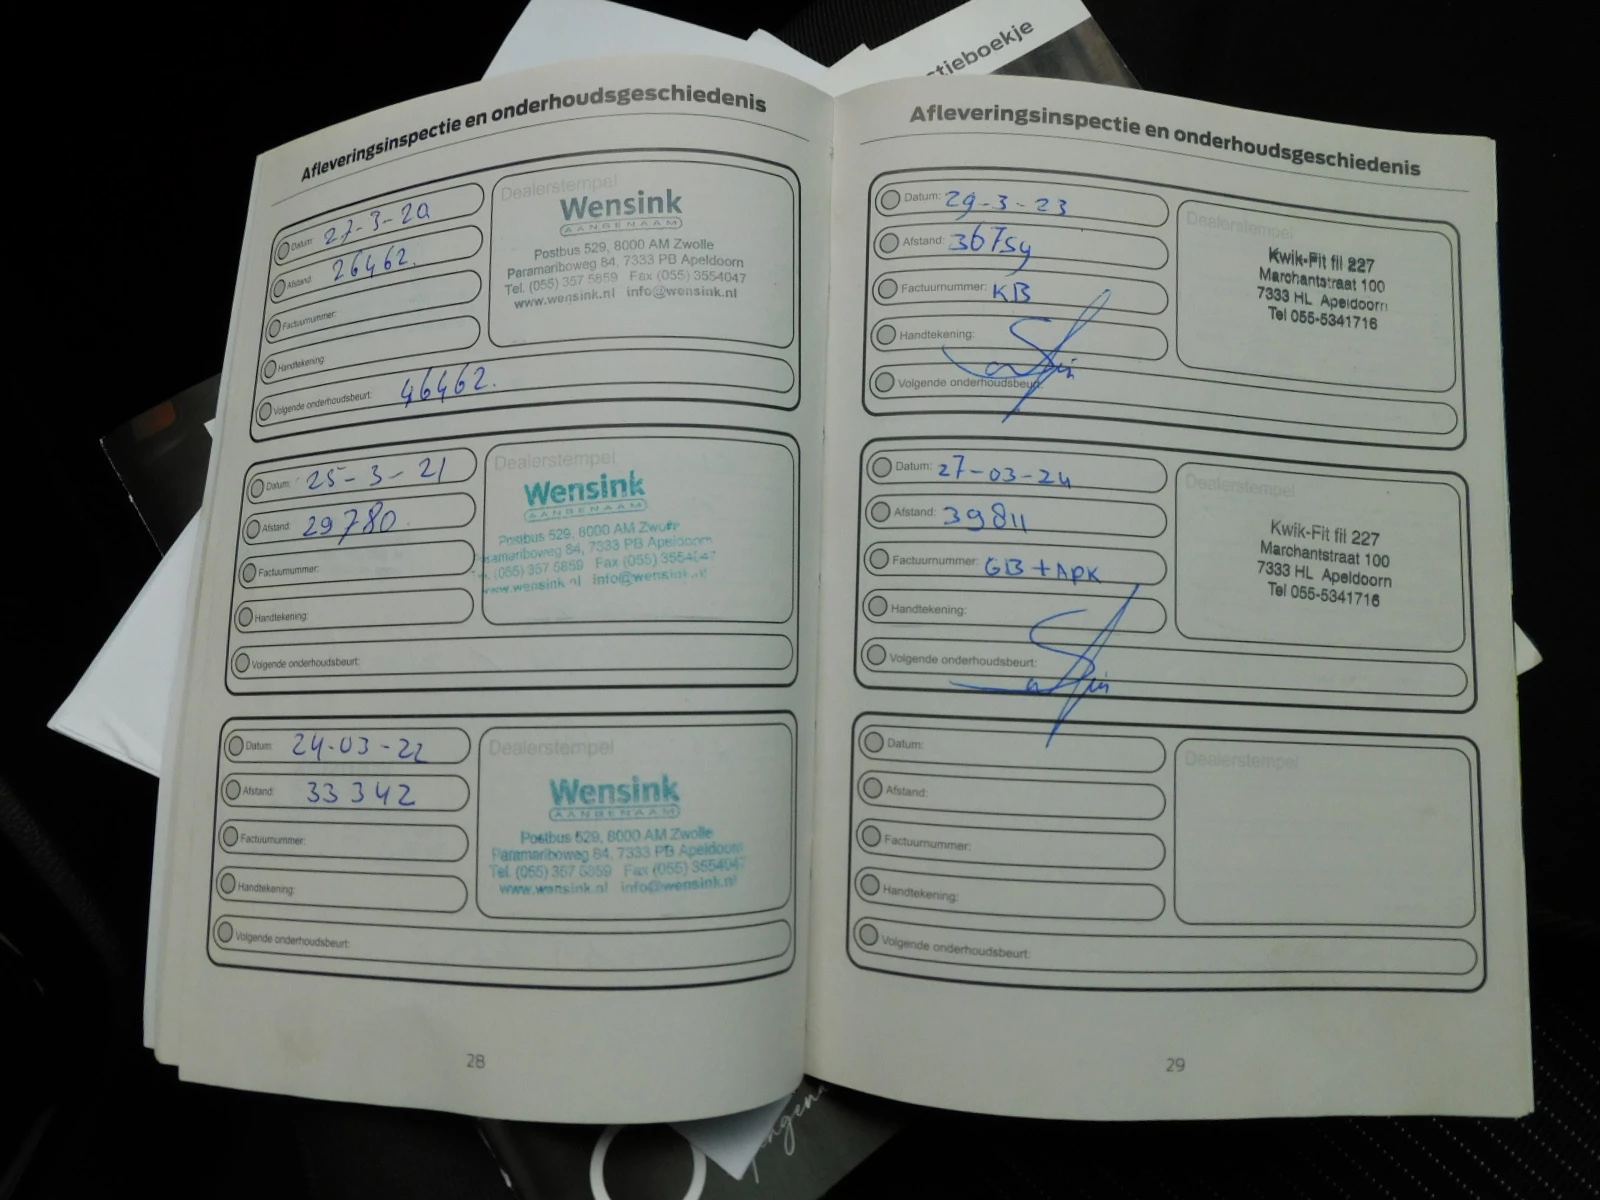 tieboekje
Afleveringsinspectie en onderhoudsgeschiedenis
Datum: 27-3-20
Afstand: 26462.
Factuurnummer:
Handtekening:
Volgende onderhoudsbeurt: 46462.
Dealerstempel
Wensink
AANGENAAM
Postbus 529, 8000 AM Zwolle
Paramariboweg 84, 7333 PB Apeldoorn
Tel. (055) 357 5859 Fax (055) 3554047
www.wensink.nl info@wensink.nl
Datum: 25-3-21
Afstand: 29780
Factuurnummer:
Handtekening:
Volgende onderhoudsbeurt:
Dealerstempel
Wensink
AANGENAAM
Postbus 529, 8000 AM Zwolle
Paramariboweg 84, 7333 PB Apeldoorn
Tel. (055) 357 5859 Fax (055) 3554047
www.wensink.nl info@wensink.nl
Datum: 24-03-22
Afstand: 33342
Factuurnummer:
Handtekening:
Volgende onderhoudsbeurt:
Dealerstempel
Wensink
AANGENAAM
Postbus 529, 8000 AM Zwolle
Paramariboweg 84, 7333 PB Apeldoorn
Tel. (055) 357 5859 Fax (055) 3554047
www.wensink.nl info@wensink.nl
28
Afleveringsinspectie en onderhoudsgeschiedenis
Datum: 29-3-23
Afstand: 36754
Factuurnummer: KB
Handtekening:
Volgende onderhoudsbeurt:
Dealerstempel
Kwik-Fit fil 227
Marchantstraat 100
7333 HL Apeldoorn
Tel 055-5341716
Datum: 27-03-24
Afstand: 39811
Factuurnummer: GB+APK
Handtekening:
Volgende onderhoudsbeurt:
Dealerstempel
Kwik-Fit fil 227
Marchantstraat 100
7333 HL Apeldoorn
Tel 055-5341716
Datum:
Afstand:
Factuurnummer:
Handtekening:
Volgende onderhoudsbeurt:
Dealerstempel
29